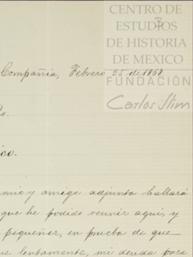 CENTRO DE
ESTUDIOS
DE HISTORIA
DE MEXICO
FUNDACIÓN
Carlos Slim
Compañia, Febrero 25 de
ico.
mio y amigo adjunta hallará
que he podido reunir aquí, y
pequeñez, en prueba de que
lentamente, mi deuda para